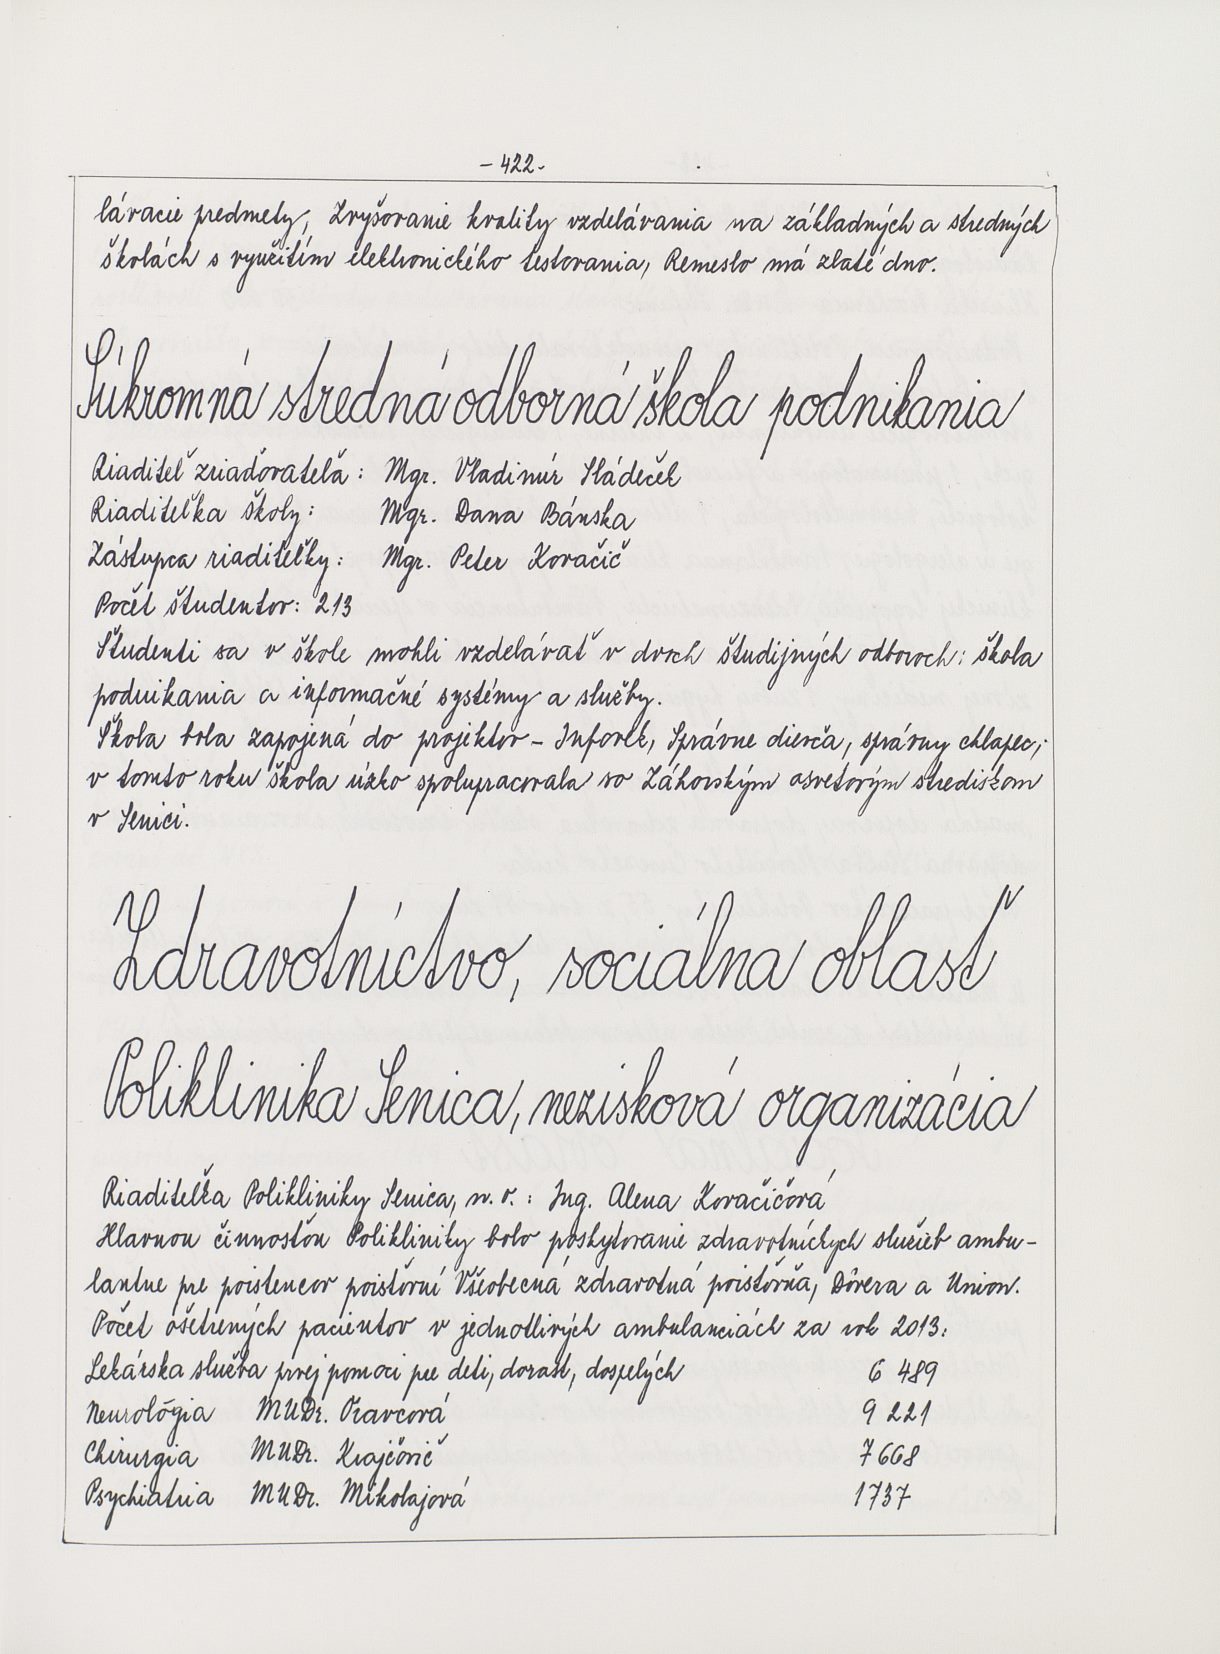 - 422 -
lávacie predmety, Zvyšovanie kvality vzdelávania na základných a stredných
školách s využitím elektronického testovania, Remeslo má zlaté dno.
Súkromná stredná odborná škola podnikania
Riaditeľ zriaďovateľa: Mgr. Vladimír Sládeček
Riaditeľka školy: Mgr. Dana Bánska
Zástupca riaditeľky: Mgr. Peter Kovačič
Počet študentov: 213
Študenti sa v škole mohli vzdelávať v dvoch študijných odboroch: škola
podnikania a informačné systémy a služby.
Škola bola zapojená do projektov - Infovek, Správne dievča, správny chlapec,
v tomto roku škola úzko spolupracovala so Záhorským osvetovým strediskom
v Senici.
Zdravotníctvo, sociálna oblasť
Poliklinika Senica, nezisková organizácia
Riaditeľka Polikliniky Senica, n. o.: Ing. Alena Kovačičová
Hlavnou činnosťou Polikliniky bolo poskytovanie zdravotníckych služieb ambu-
lantne pre poistencov poisťovní Všeobecná zdravotná poisťovňa, Dôvera a Union.
Počet ošetrených pacientov v jednotlivých ambulanciách za rok 2013:
Lekárska služba prvej pomoci pre deti, dorast, dospelých 6 489
Neurológia MUDr. 9 221
Chirurgia MUDr. Krajčovič 7 668
Psychiatria MUDr. Mikolajová 1737